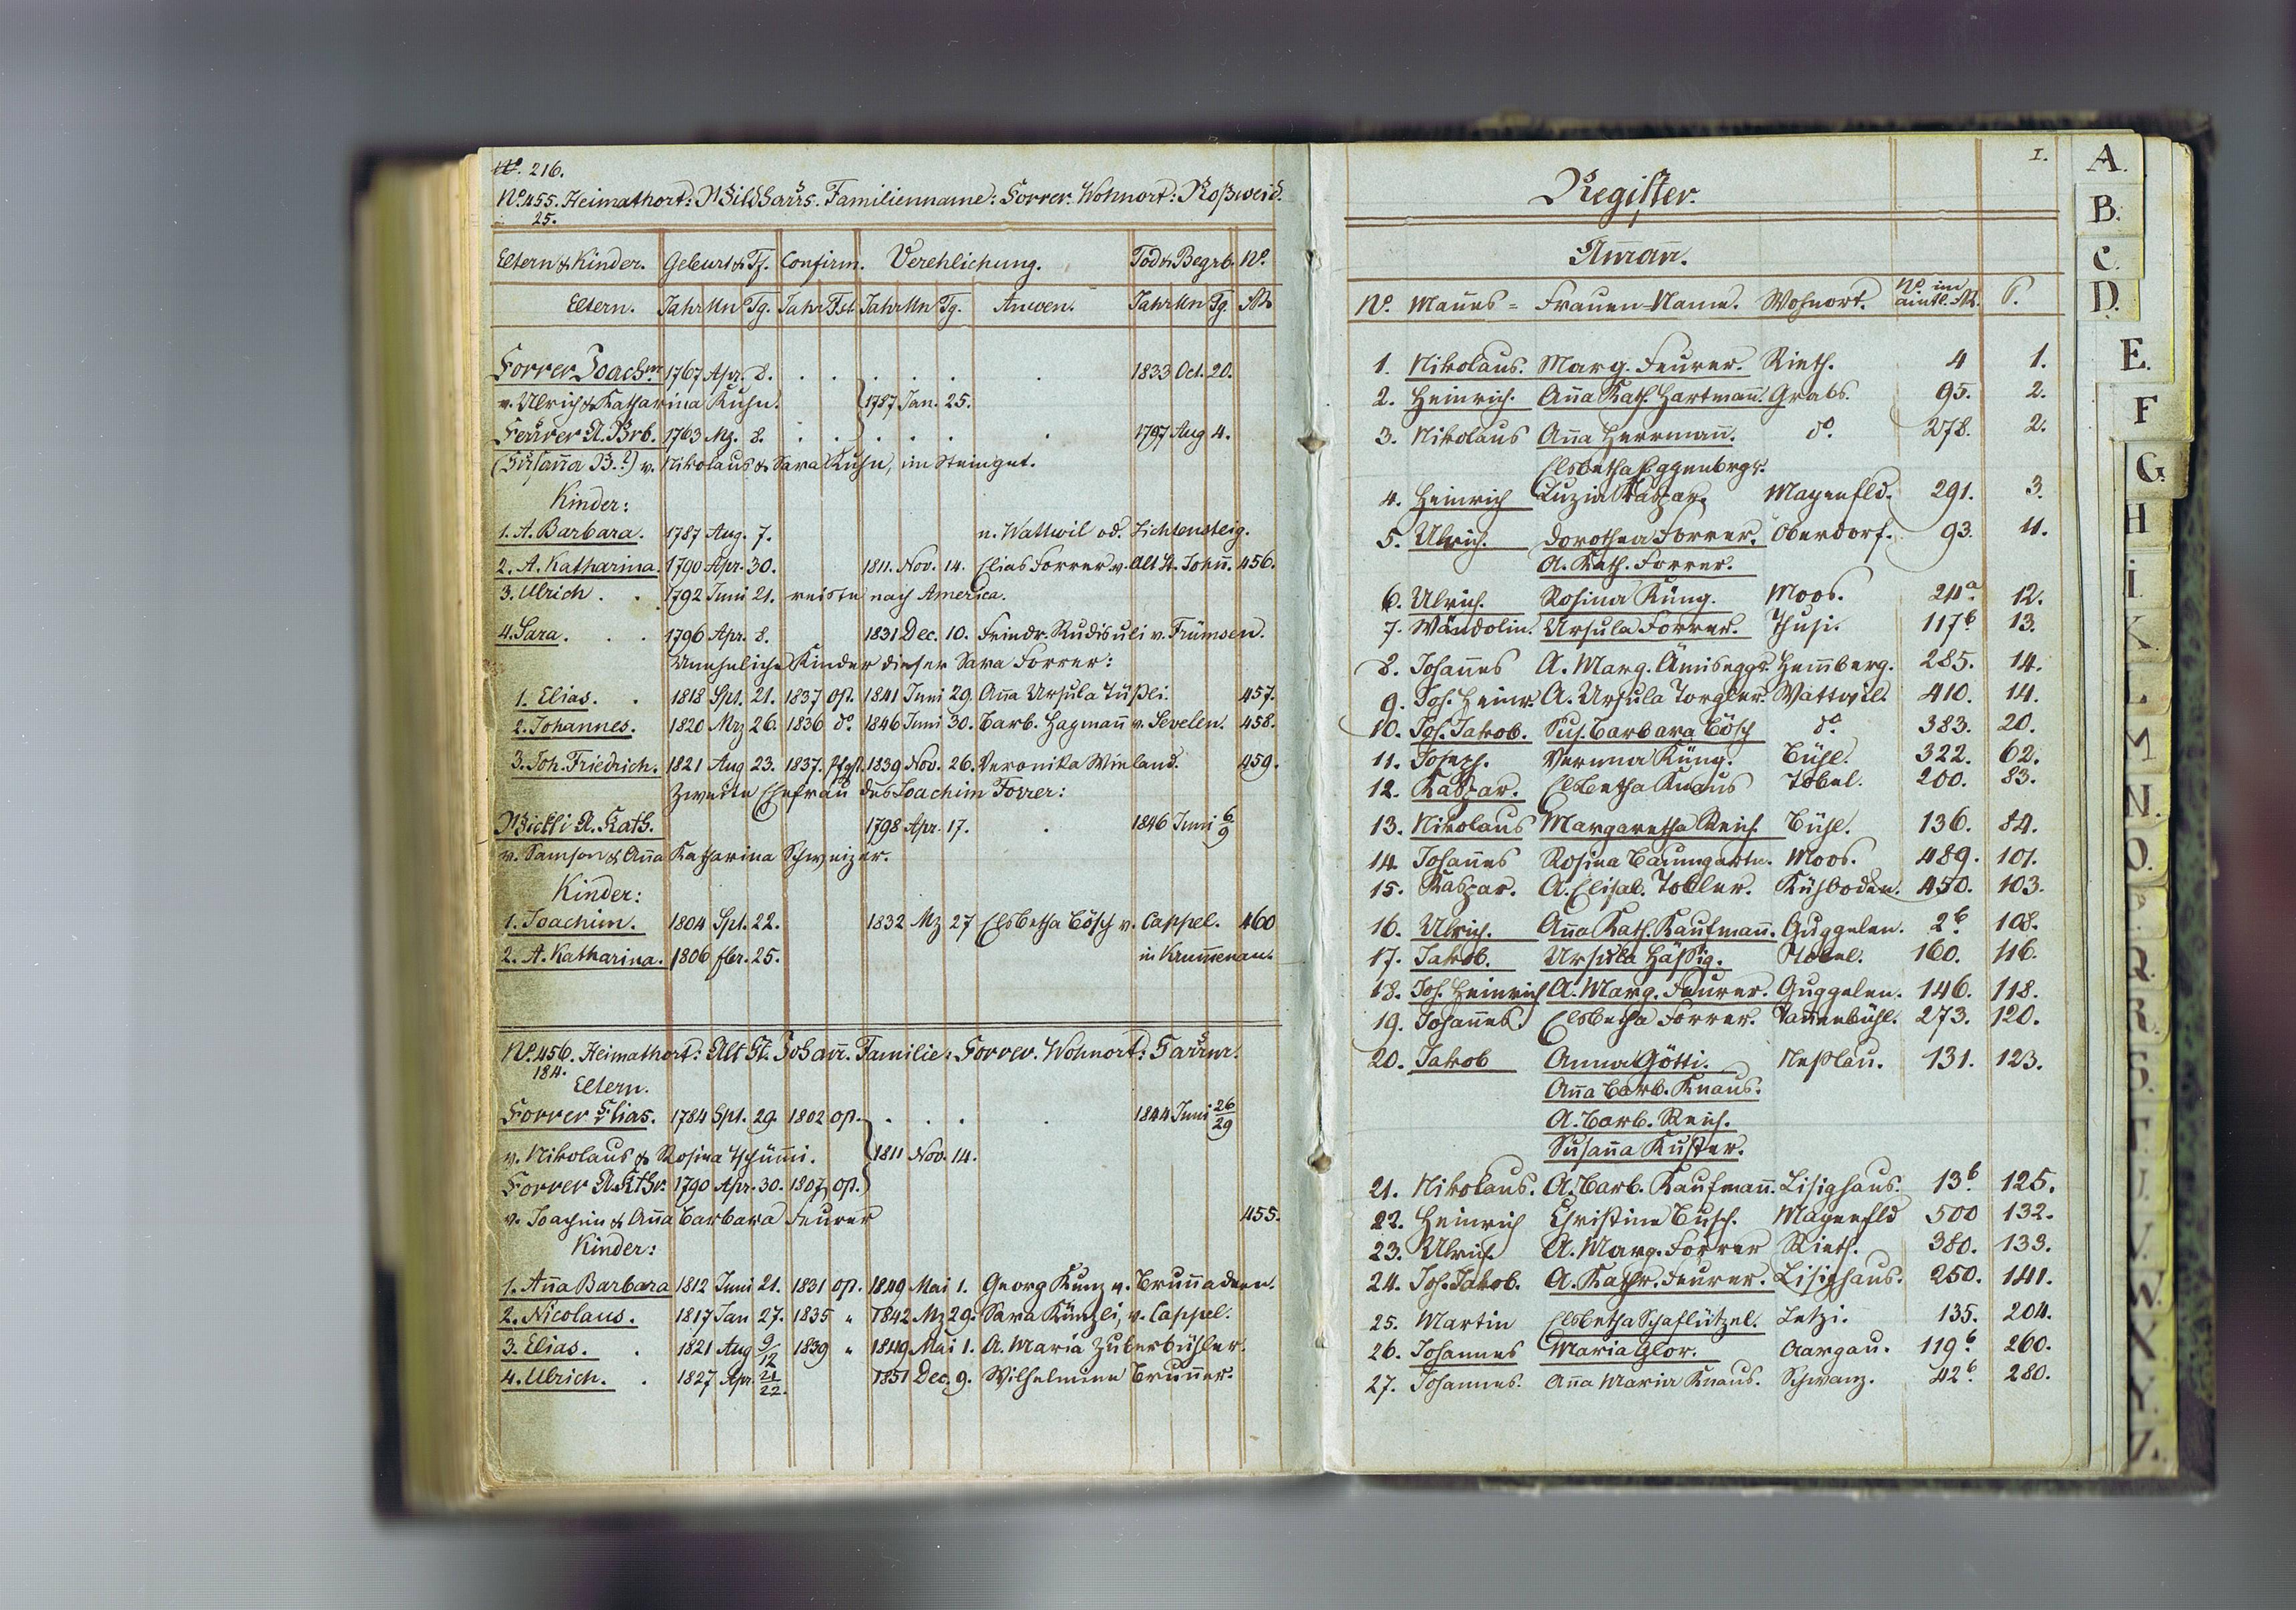 No. 216.
No. 455. Heimathort: Wildhaus. Familienname: Forrer. Wohnort: Roßweid.
25.
Eltern & Kinder. Geburt & Tf. Confirm. Verehlichung. Tod & Begrb. No.
Eltern. Jahr Mn Tg. Jahr Fst. Jahr Mn Tg. Anwen. Jahr Mn Tg.
Forrer Joachm. 1767 Apr. 8. 1833 Oct. 20.
v. Ulrich & Katharina Kuhn. 1787 Jan. 25.
Feurer A. Brb. 1763 Mz. 8. 1797 Aug 4.
(Susaña B.?) v. Nikolaus & Sara Kuhn, im Steingut.
Kinder:
1. A. Barbara. 1787 Aug. 7. n. Wattwil od. Lichtensteig.
2. A. Katharina. 1790 Apr. 30. 1811. Nov. 14. Elias Forrer v. Alt St. Johñ. 456.
3. Ulrich. 1792 Juni 21. reiste nach America.
4. Sara. 1796 Apr. 8. 1831 Dec. 10. Friedr. Rudisuli v. Frümsen.
Unehliche Kinder dieser Sara Forrer:
1. Elias. 1818 Spt. 21. 1837 Op. 1841 Juni 29. Aña Ursula Tüßli. 457.
2. Johannes. 1820 Mrz 26. 1836 do. 1846 Juni 30. Barb. Hagmañ v. Sevelen. 458.
3. Joh. Friedrich. 1821 Aug 23. 1837. Pfgst. 1839 Nov. 26. Veronika Wieland. 459.
Zweite Ehefrau des Joachim Forrer:
Bickli A. Kath. 1798 Apr. 17. 1846 Juni 6/9
v. Samson & Aña Katharina Schweizer.
Kinder:
1. Joachim. 1804 Spt. 22. 1832 Mz 27 Elsbetha Bösch v. Cappel. 460
2. A. Katharina. 1806 fbr. 25. in Krum̃enau.
No. 456. Heimathort: Alt St. Johañ. Familie: Forrer. Wohnort:
184.
Eltern.
Forrer Elias. 1784 Spt. 29. 1802 Op. 1844 Juni 26/29
v. Nikolaus & Rosina Tschüm̃i. 1811 Nov. 14.
Forrer A. Kthr. 1790 Apr. 30. 1807 Op.
v. Joachim & Aña Barbara Feurer 455.
Kinder:
1. Aña Barbara 1812 Juni 21. 1831 Op. 1849 Mai 1. Georg Kunz v. Bruñadern.
2. Nicolaus. 1817 Jan 27. 1835 " 1842 Mz 29. Sara Künzli, v. Cappel.
3. Elias. 1821 Aug 9/12 1839 " 1849 Mai 1. A. Maria Zuberbühler.
4. Ulrich. 1827 Apr. 21/22. 1851 Dec. 9. Wilhelmine Bruñer.
I.
Register.
Amañ.
No. Mañes= Frauen=Name. Wohnort. No. im amtl. R. P.
1. Nikolaus. Marg. Feurer. Rieth. 4 1.
2. Heinrich. Aña Kath. Hartmañ. Grabs. 95. 2.
3. Nikolaus Aña Herrmañ. do. 278. 2.
Elsbetha Eggenbrgr.
4. Heinrich Luzia Kaspar. Mayenfld. 291. 3.
5. Ulrich. Dorothea Forrer. Oberdorf. 93. 11.
A. Kath. Forrer.
6. Ulrich. Rosina Küng. Moos. 24a. 12.
7. Wändolin. Ursula Forrer. Thusi. 117b. 13.
8. Johañes A. Marg. Ämiseggr. Hem̃berg. 285. 14.
9. Joh. Heinr. A. Ursula Torgler. Wattwil. 410. 14.
10. Joh. Jakob. Sus. Barbara Bösch do. 383. 20.
11. Joseph. Verena Küng. Bühl. 322. 62.
12. Kaspar. Elsbetha Knaus Tobel. 200. 83.
13. Nikolaus Margaretha Reich. Bühl. 136. 84.
14. Johañes Rosina Baumgartn. Moos. 489. 101.
15. Kaspar. A. Elisab. Tobler. Kühboden. 450. 103.
16. Ulrich. Aña Kath. Kaufmañ. Guggelen. 2b. 108.
17. Jakob. Ursula Häßig. Tobel. 160. 116.
18. Joh. Heinrich A. Marg. Feurer. Guggelen. 146. 118.
19. Johañes. Elsbetha Forrer. Tañenbühl. 273. 120.
20. Jakob Anna Götti. Neßlau. 131. 123.
Aña Barb. Knaus.
A. Barb. Reich.
Susaña Kuster.
21. Nikolaus. A. Barb. Kaufmañ. Lisighaus. 13b. 125.
22. Heinrich Christina Busch. Mayenfld 500 132.
23. Ulrich. A. Marg. Forrer Rieth. 380. 133.
24. Joh. Jakob. A. Kathr. Feurer. Lisighaus. 250. 141.
25. Martin Elsbetha Schaflützel. Letzi. 135. 204.
26. Johannes Maria Glor. Aargau. 119b. 260.
27. Johannes. Aña Maria Knaus. Schwanz. 42b. 280.
A.
B.
C.
D.
E.
F
G.
H
I.
K.
L
M
N.
O.
P.
Q.
R.
S.
T.
U.
V.
W.
X.
Y.
Z.